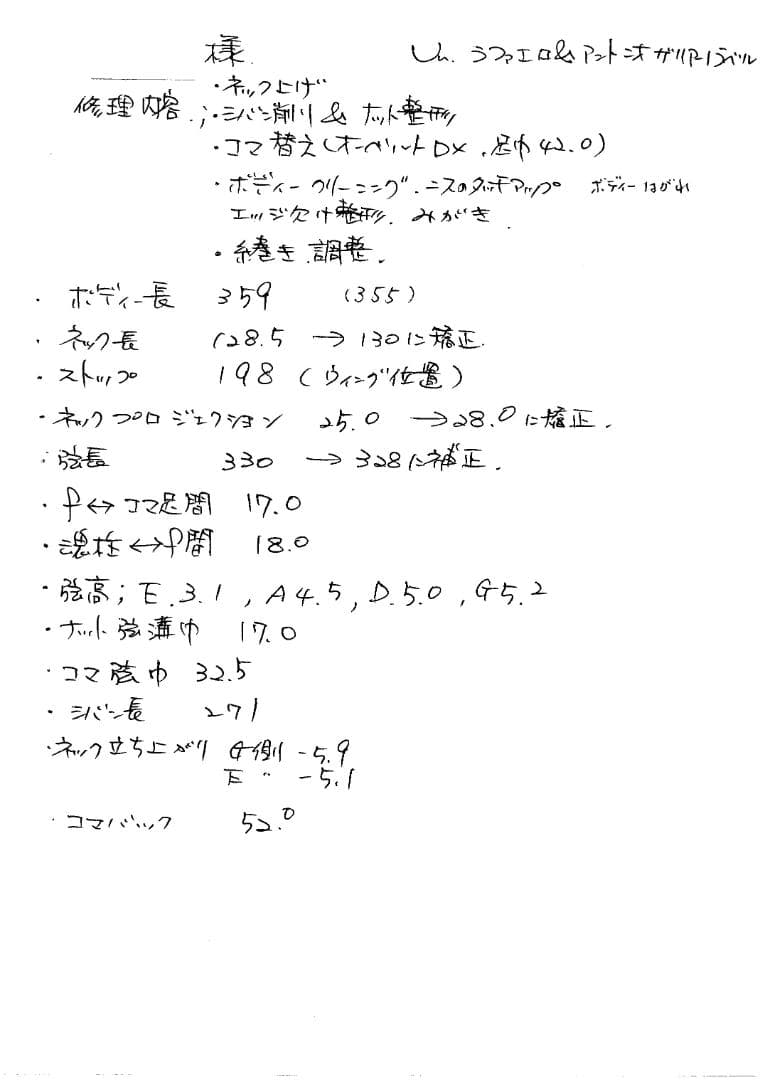 様. Vn. ラファエロ&アントニオ ガリアーノラベル
・ネック上げ
修理内容.;・シバン削り & ナット整形
・コマ替え(オーベルトDX.足巾42.0)
・ボディークリーニング.ニスのタッチアップ ボディーはがれ
エッジ欠け整形. みがき.
・糸巻き.調整.
・ボディー長 359 (355)
・ネック長 128.5 →130に矯正.
・ストップ 198 (ウィング位置)
・ネックプロジェクション 25.0 →28.0に矯正.
・弦長 330 →328に補正.
・f↔コマ足間 17.0
・魂柱↔f間 18.0
・弦高; E.3.1 , A4.5, D.5.0 , G5.2
・ナット弦溝巾 17.0
・コマ弦巾 32.5
・シバン長 271
・ネック立ち上がり G側 -5.9
E 〃 -5.1
・コマバック 52.0